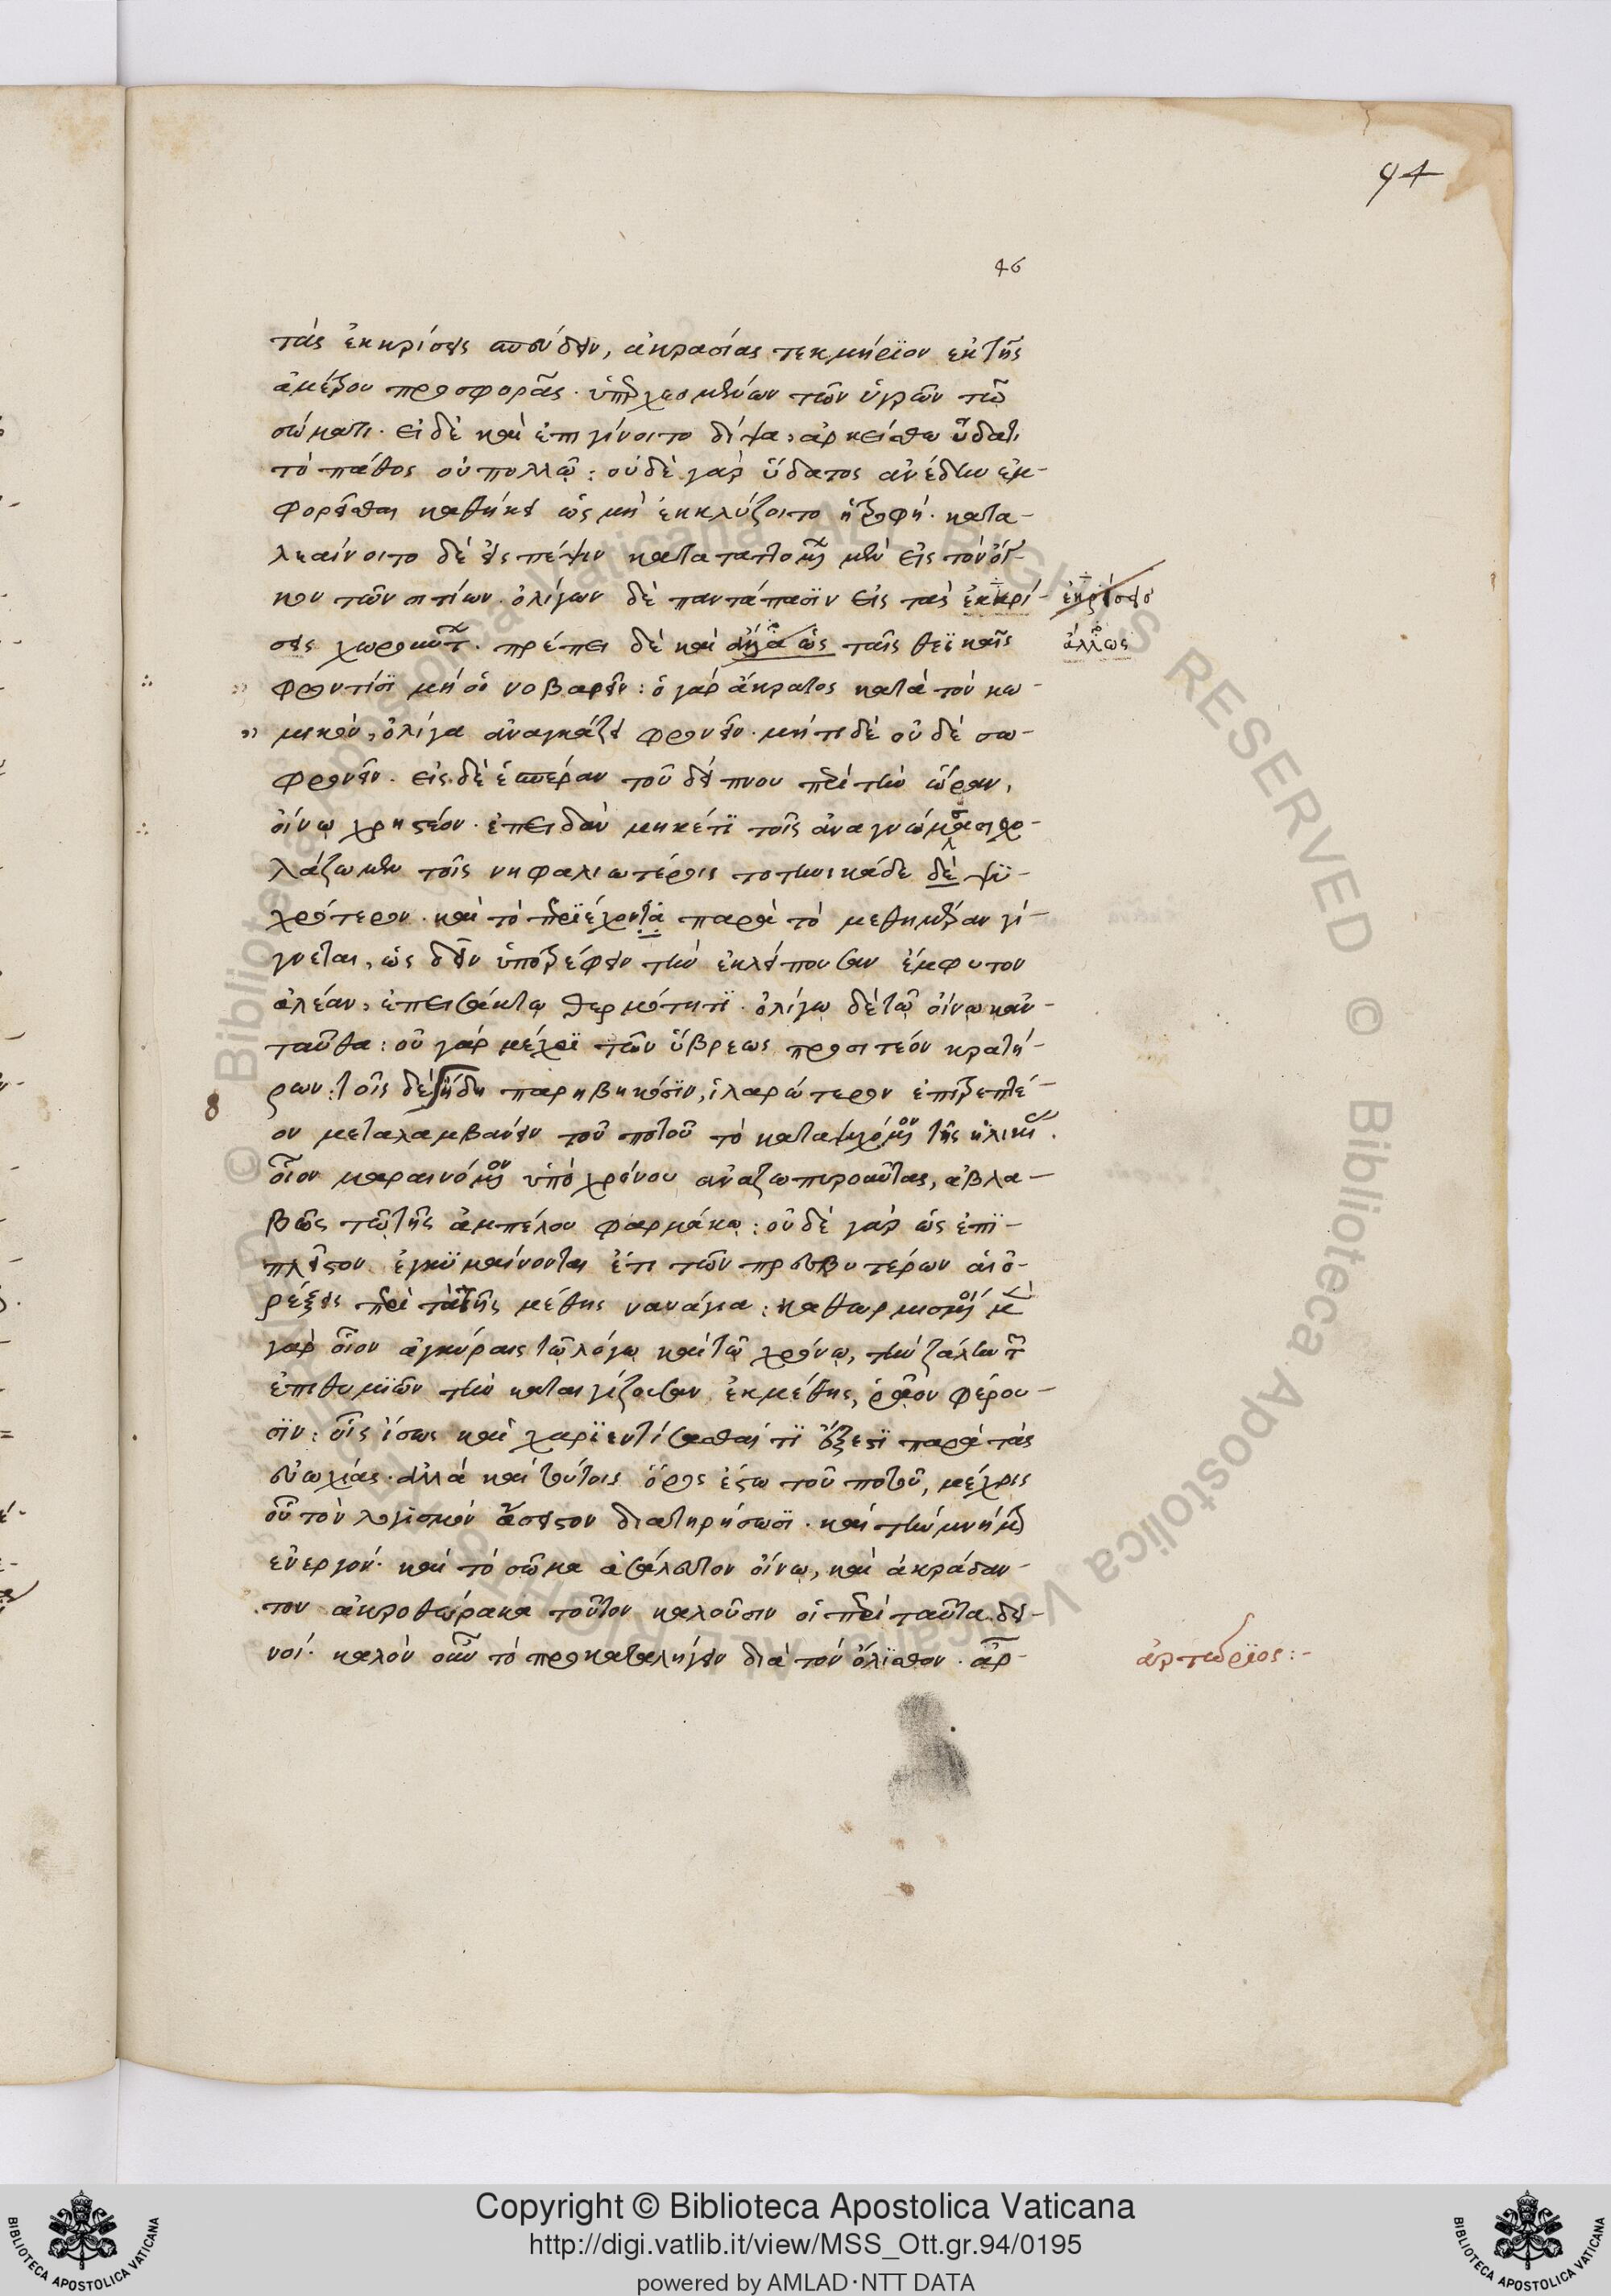 94
46
τὰς ἐκκρίσεις σπεύδειν, ἀκρασίας τεκμήριον ἐκ τῆς
ἀμέτρου προσφορᾶς. ὑπερχεομένων τῶν ὑγρῶν τῶ
σώματι. εἰ δὲ καὶ ἐπιγίνοιτο δίψα, ἀρκείσθω ὕδατι
τὸ πάθος οὐ πολλῶ: οὐδὲ γὰρ ὕδατος ἀνέδην ἐμ-
φορεῖσθαι καθήκει ὡς μὴ ἐκκλύζοιτο ἡ τροφή. κατα-
λεαίνοιτο δὲ εἰς πέψιν καταταττομένης μὲν εἰς τὸν ὄγ-
κον τῶν σιτίων. ὀλίγων δὲ παντάπασϊν εἰς τὰς ἐκκρί-
σεις χωρούντων. πρέπει δὲ καὶ ἄλλως ταῖς θεϊκαῖς
φροντίσϊ μὴ οἰνοβαρεῖν: ὁ γὰρ ἄκρατος κατὰ τὸν κω-
μικὸν, ὀλίγα ἀναγκάζει φρονεῖν. μήτι δὲ οὐδὲ σω-
φρονεῖν. εἰς δὲ ἑσπέραν τοῦ δείπνου περὶ τὴν ὥραν,
οἴνω χρηστέον. ἐπειδὰν μηκέτϊ τοῖς ἀναγνώσμασι σχο-
λάζωμεν τοῖς νηφαλιωτέροις τοτηνικάδε δὲ ψϋ-
χρότερον. καὶ τὸ περϊέχοντα παρὰ τὸ μεθημέραν γί-
γνεται, ὡς δεῖν ὑποτρέφειν τὴν ἐκλείπουσαν ἔμφυτον
ἀλέαν, ἐπεισάκτω θερμότητϊ. ὀλίγω δὲ τῶ οἴνω κἀν-
ταῦθα: οὐ γὰρ μέχρϊ τῶν ὕβρεως προσιτέον κρατή-
ρων: τοῖς δὲ ἤδη παρηβηκόσϊν, ἱλαρώτερον ἐπιτρεπτέ-
ον μεταλαμβάνειν τοῦ ποτοῦ τὸ καταψυχόμενον τῆς ἡλικίας.
οἷον μαραινόμενον ὑπὸ χρόνου ἀναζωπυροῦντας, ἀβλα-
βῶς τῶ τῆς ἀμπέλου φαρμάκω: οὐδὲ γὰρ ὡς ἐπϊ-
πλεῖστον ἐγκϋμαίνονται ἔτι τῶν πρεσβυτέρων αἱ ὀ-
ρέξεις περὶ τὰ τῆς μέθης ναυάγια: καθωρμισμένοι μὲν
γὰρ οἷον ἀγκύραις τῶ λόγω καὶ τῶ χρόνω, τὴν ζάλην τῶν
ἐπιθυμϊῶν τὴν καταιγίζουσαν ἐκ μέθης, ῥᾶον φέρου-
σϊν: οἷς ἴσως καὶ χαρϊεντίσασθαί τϊ ἔξεστϊ παρὰ τὰς
εὐωχίας. ἀλλὰ καὶ τούτοις ὅρος ἔστω τοῦ ποτοῦ, μέχρις
οὗ τὸν λογϊσμὸν ἄσειστον διατηρήσωσϊ. καὶ τὴν μνήμην
ἐνεργόν. καὶ τὸ σῶμα ἀσάλευτον οἴνω, καὶ ἀκράδαν-
τον ἀκροθώρακα τοῦτον καλοῦσιν οἱ περὶ ταῦτα δει-
νοί. καλὸν οὖν τὸ προκαταλήγειν διὰ τὸν ὄλϊσθον. ἀρ-
ἐκκρίσεις
ἄλλως
8
ἀρτώρϊος:-
Copyright © Biblioteca Apostolica Vaticana
http://digi.vatlib.it/view/MSS_Ott.gr.94/0195
powered by AMLAD·NTT DATA